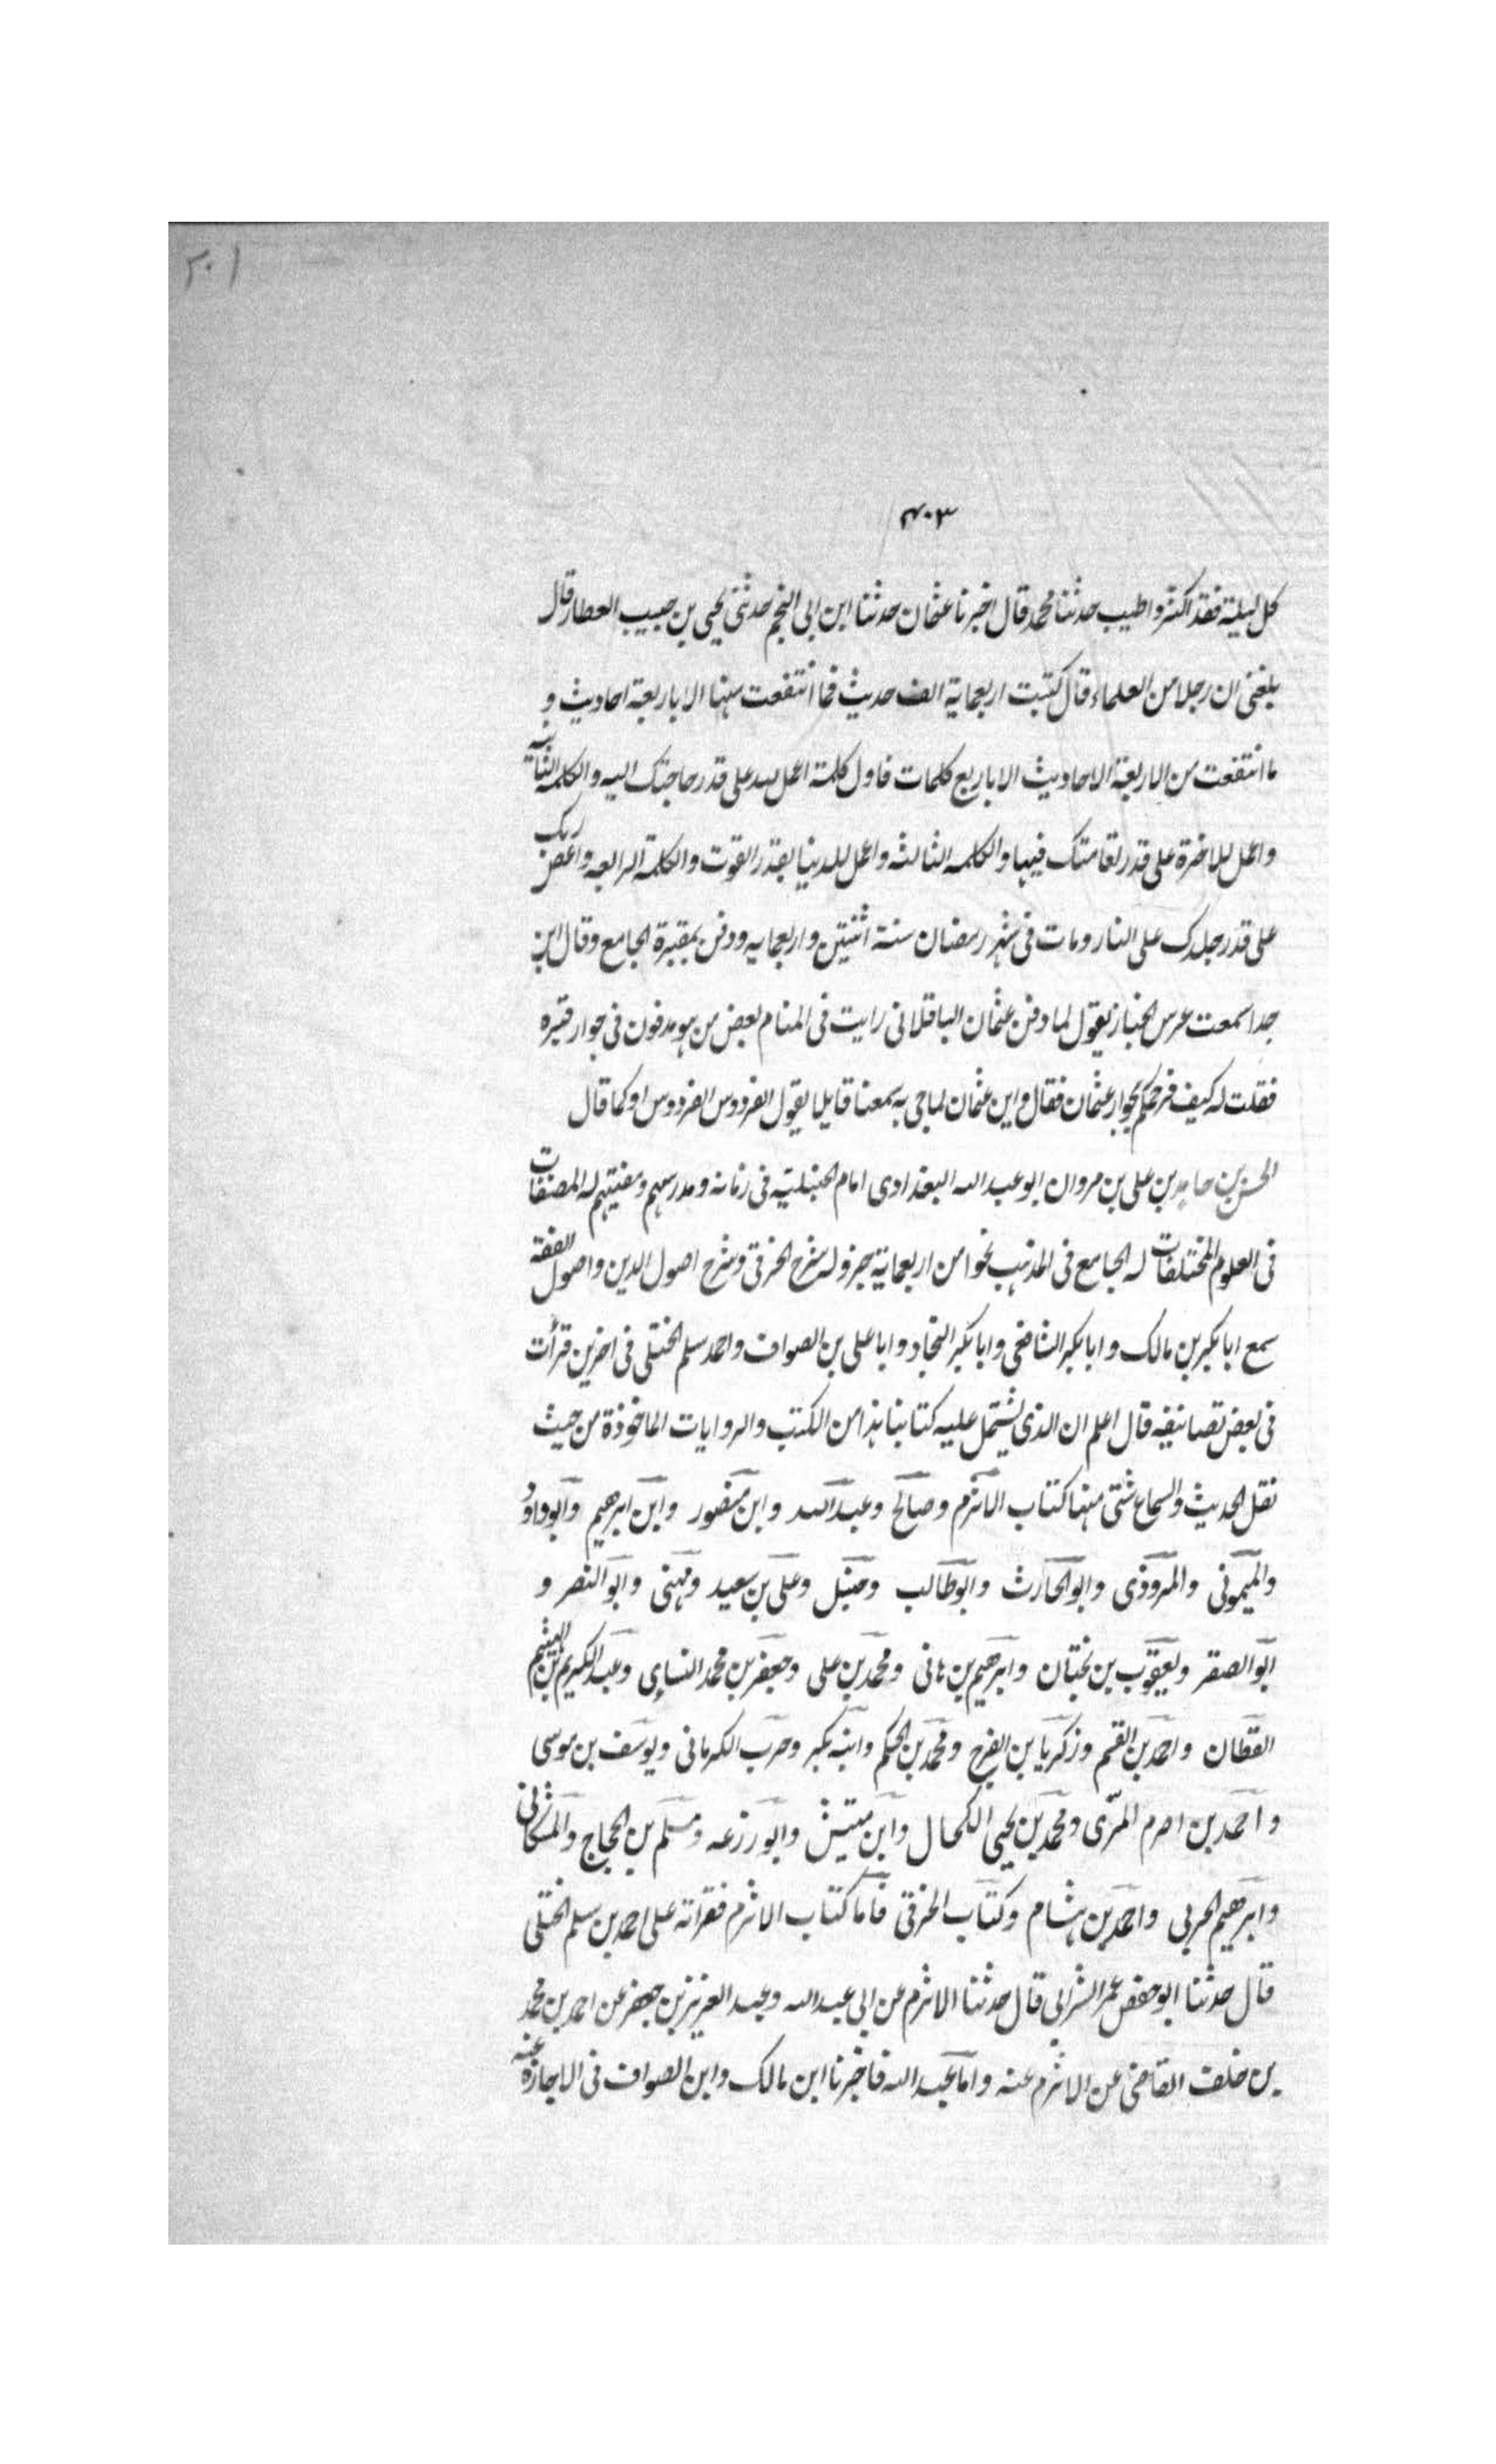 ٢٠١
٤٠٣
كل ليلة فقد اكثر واطيب حدثنا محمد قال اخبرنا عثمان حدثنا ابن ابى النجم حدثنى يحيى بن حبيب العطار قال
بلغنى ان رجلا من العلماء قال كتبت اربعماية الف حديث فما انتفعت منها الا باربعة احاديث و
ما انتفعت من الاربعة الاحاديث الا باربع كلمات فاول كلمة اعمل لله على قدر حاجتك اليه والكلمة الثانية
واعمل للاخرة على قدر لقامتك فيها والكلمه الثالثه واعمل للدنيا بقدر القوت والكلمة الرابعه واعص ربك
على قدر جلدك على النار ومات فى شهر رمضان سنة اثنتين واربعمايه ودفن بمقبرة الجامع وقال ابن
جدا سمعت عرس الخباز يقول لما دفن عثمان الباقلانى رايت فى المنام بعض من هو مدفون فى جوار قبره
فقلت له كيف فرحكم بجوار عثمان فقال واين عثمان لما جى به سمعنا قايلا يقول الفردوس الفردوس او كما قال
الحسن بن حامد بن على بن مروان ابو عبد الله البغدادى امام الحنبلية فى زمانه ومدرسهم ومفتيهم له المصنفات
فى العلوم المختلفات له الجامع فى المذهب نحوا من اربعماية جزو له شرح الخرقى وشرح اصول الدين واصول الفقه
سمع ابا بكر بن مالك وابا بكر الشافعى وابا بكر النجاد وابا على بن الصواف واحمد سلم الختلى فى اخرين قرأت
فى بعض تصانيفه قال اعلم ان الذى يشتمل عليه كتابنا هذا من الكتب والروايات الماخوذة من حيث
نقل الحديث والسماع شتى منها كتاب الاثرم وصالح وعبد الله وابن منصور وابن ابرهيم وابو داود
والميمونى والمروذى وابو الحارث وابو طالب وحنبل وعلى بن سعيد ومهنى وابو النصر و
ابو الصقر ويعقوب بن بختان وابرهيم بن هانى ومحمد بن على وجعفر بن محمد النسايى وعبد الكريم بن الهيثم
القطان واحمد بن القسم وزكريا بن الفرج ومحمد بن الحكم وابنه بكر وحرب الكرمانى ويوسف بن موسى
واحمد بن اصرم المزى ومحمد بن يحيى الكحال وابن مشيش وابو زرعه ومسلم بن الحجاج والمسكانى
وابرهيم الحربى واحمد بن هشام وكتاب الخرقى فاما كتاب الاثرم فقراته على احمد بن سلم الختلى
قال حدثنا ابو حفص عمر الشرابى قال حدثنا الاثرم عن ابى عبد الله وعبد العزيز بن جعفر عن احمد بن محمد
بن خلف القاضى عن الاثرم عنه واما عبد الله فاخبرنا ابن مالك وابن الصواف فى الاجازة عنه